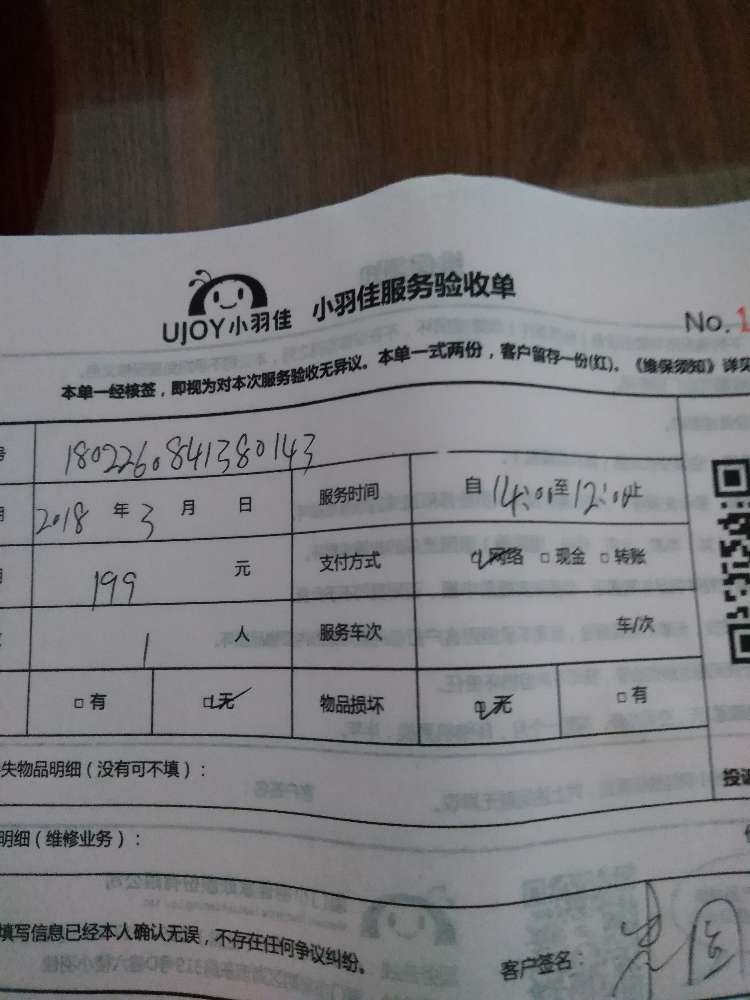 UJOY小羽佳 小羽佳服务验收单
No.1
本单一经核签，即视为对本次服务验收无异议。本单一式两份，客户留存一份(红)。《维保须知》详见
号 1802260841380143
期 2018 年 3 月 日 服务时间 自 14:00 至 12:00 止
用 199 元 支付方式 网络 现金 转账
1 人 服务车次 车/次
有 无 物品损坏 无 有
失物品明细（没有可不填）：
投诉
明细（维修业务）：
填写信息已经本人确认无误，不存在任何争议纠纷。
客户签名：